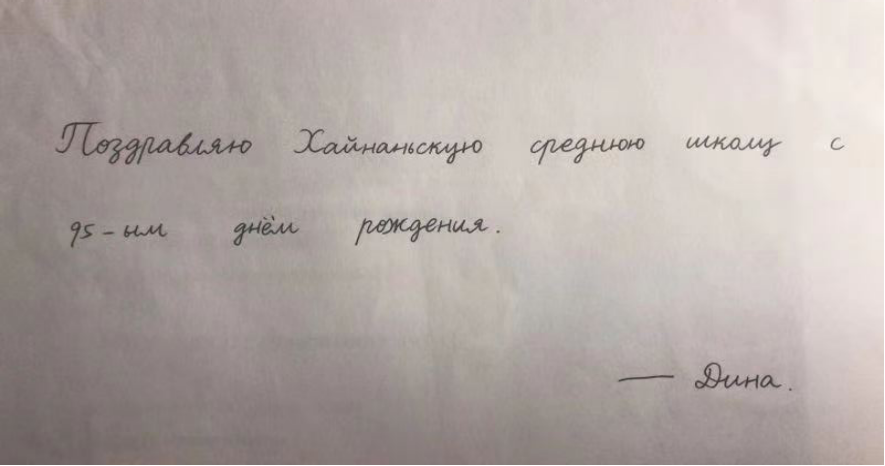 Поздравляю Хайнаньскую среднюю школу с
95-ым днём рождения.
— Дина.